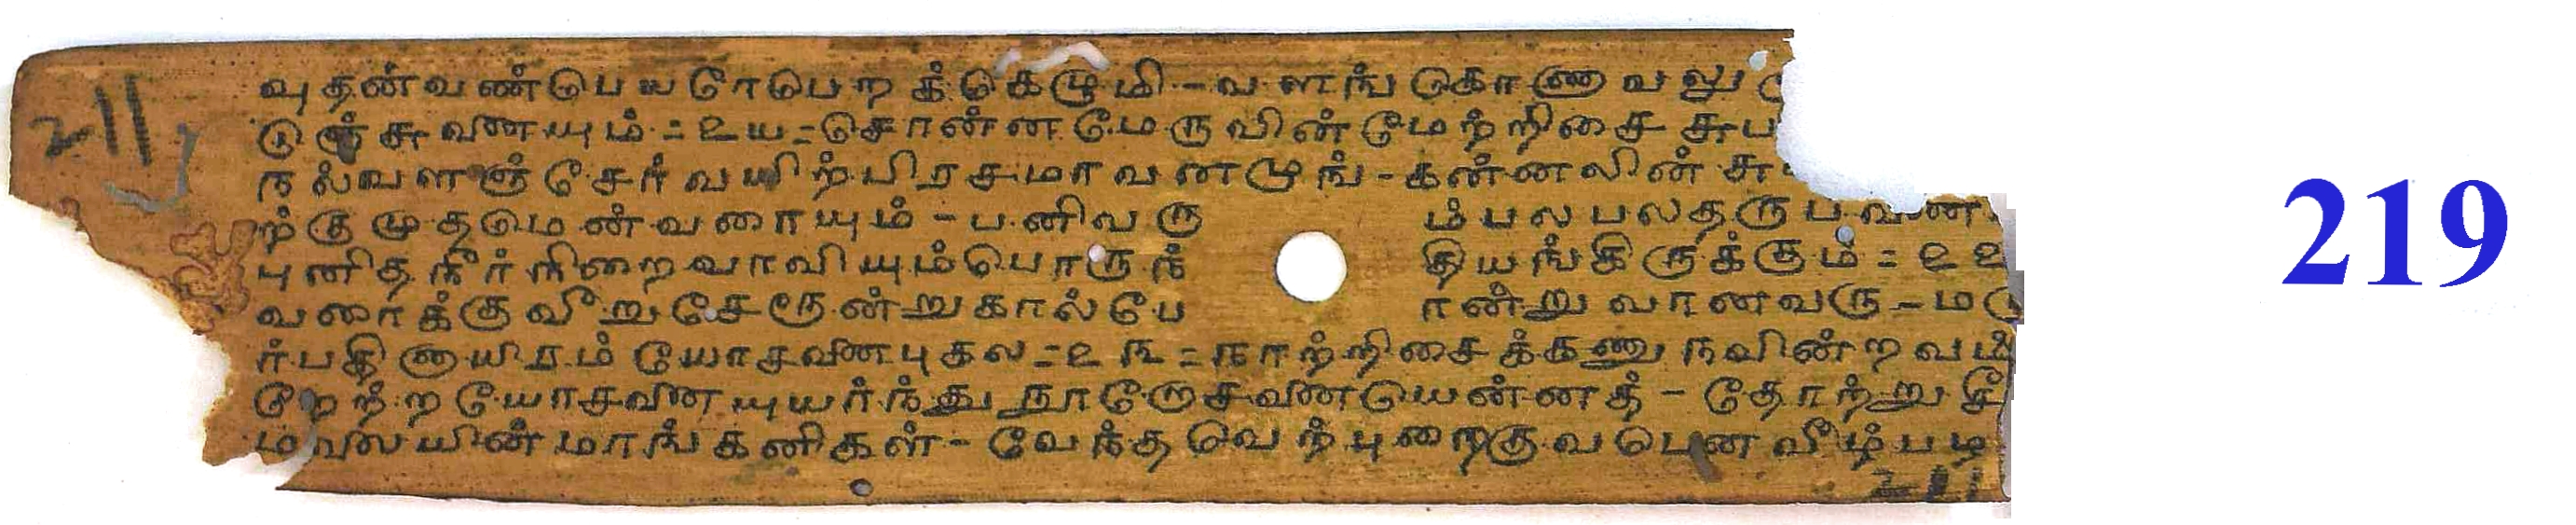 வுதன்வண்பெயரோபெறக்கெழுமி - வளங்கொணாவலு
டுஞ்சுனையும் = உய = சொன்னமேருவின்மேற்றிசை சுப
நல்வளஞ்சேர் வயிற்பிரசமாவனமுங் - கன்னலின் சு
ற்குமுதமென்வரையும் - பனிவரு ம்பலபலதருபவன
புனிதநீர்நிறைவாவியும்பொருந் தியங்கிருக்கும் = உஉ
வரைக்குவீறுசேரூன்றுகால்போ ன்று வானவரு - மரு
ர்பதினாயிரம் யோசனைபுகல = உங = நாற்றிசைக்கணு நவின்றவம்
றேற்ற யோசனையுயர்ந்து நூறோசனையென்னத் - தோற்று
மலையின் மாங்கனிகள் - வேந்தவெற்புறைகுவபெனவீழ்பழ
219